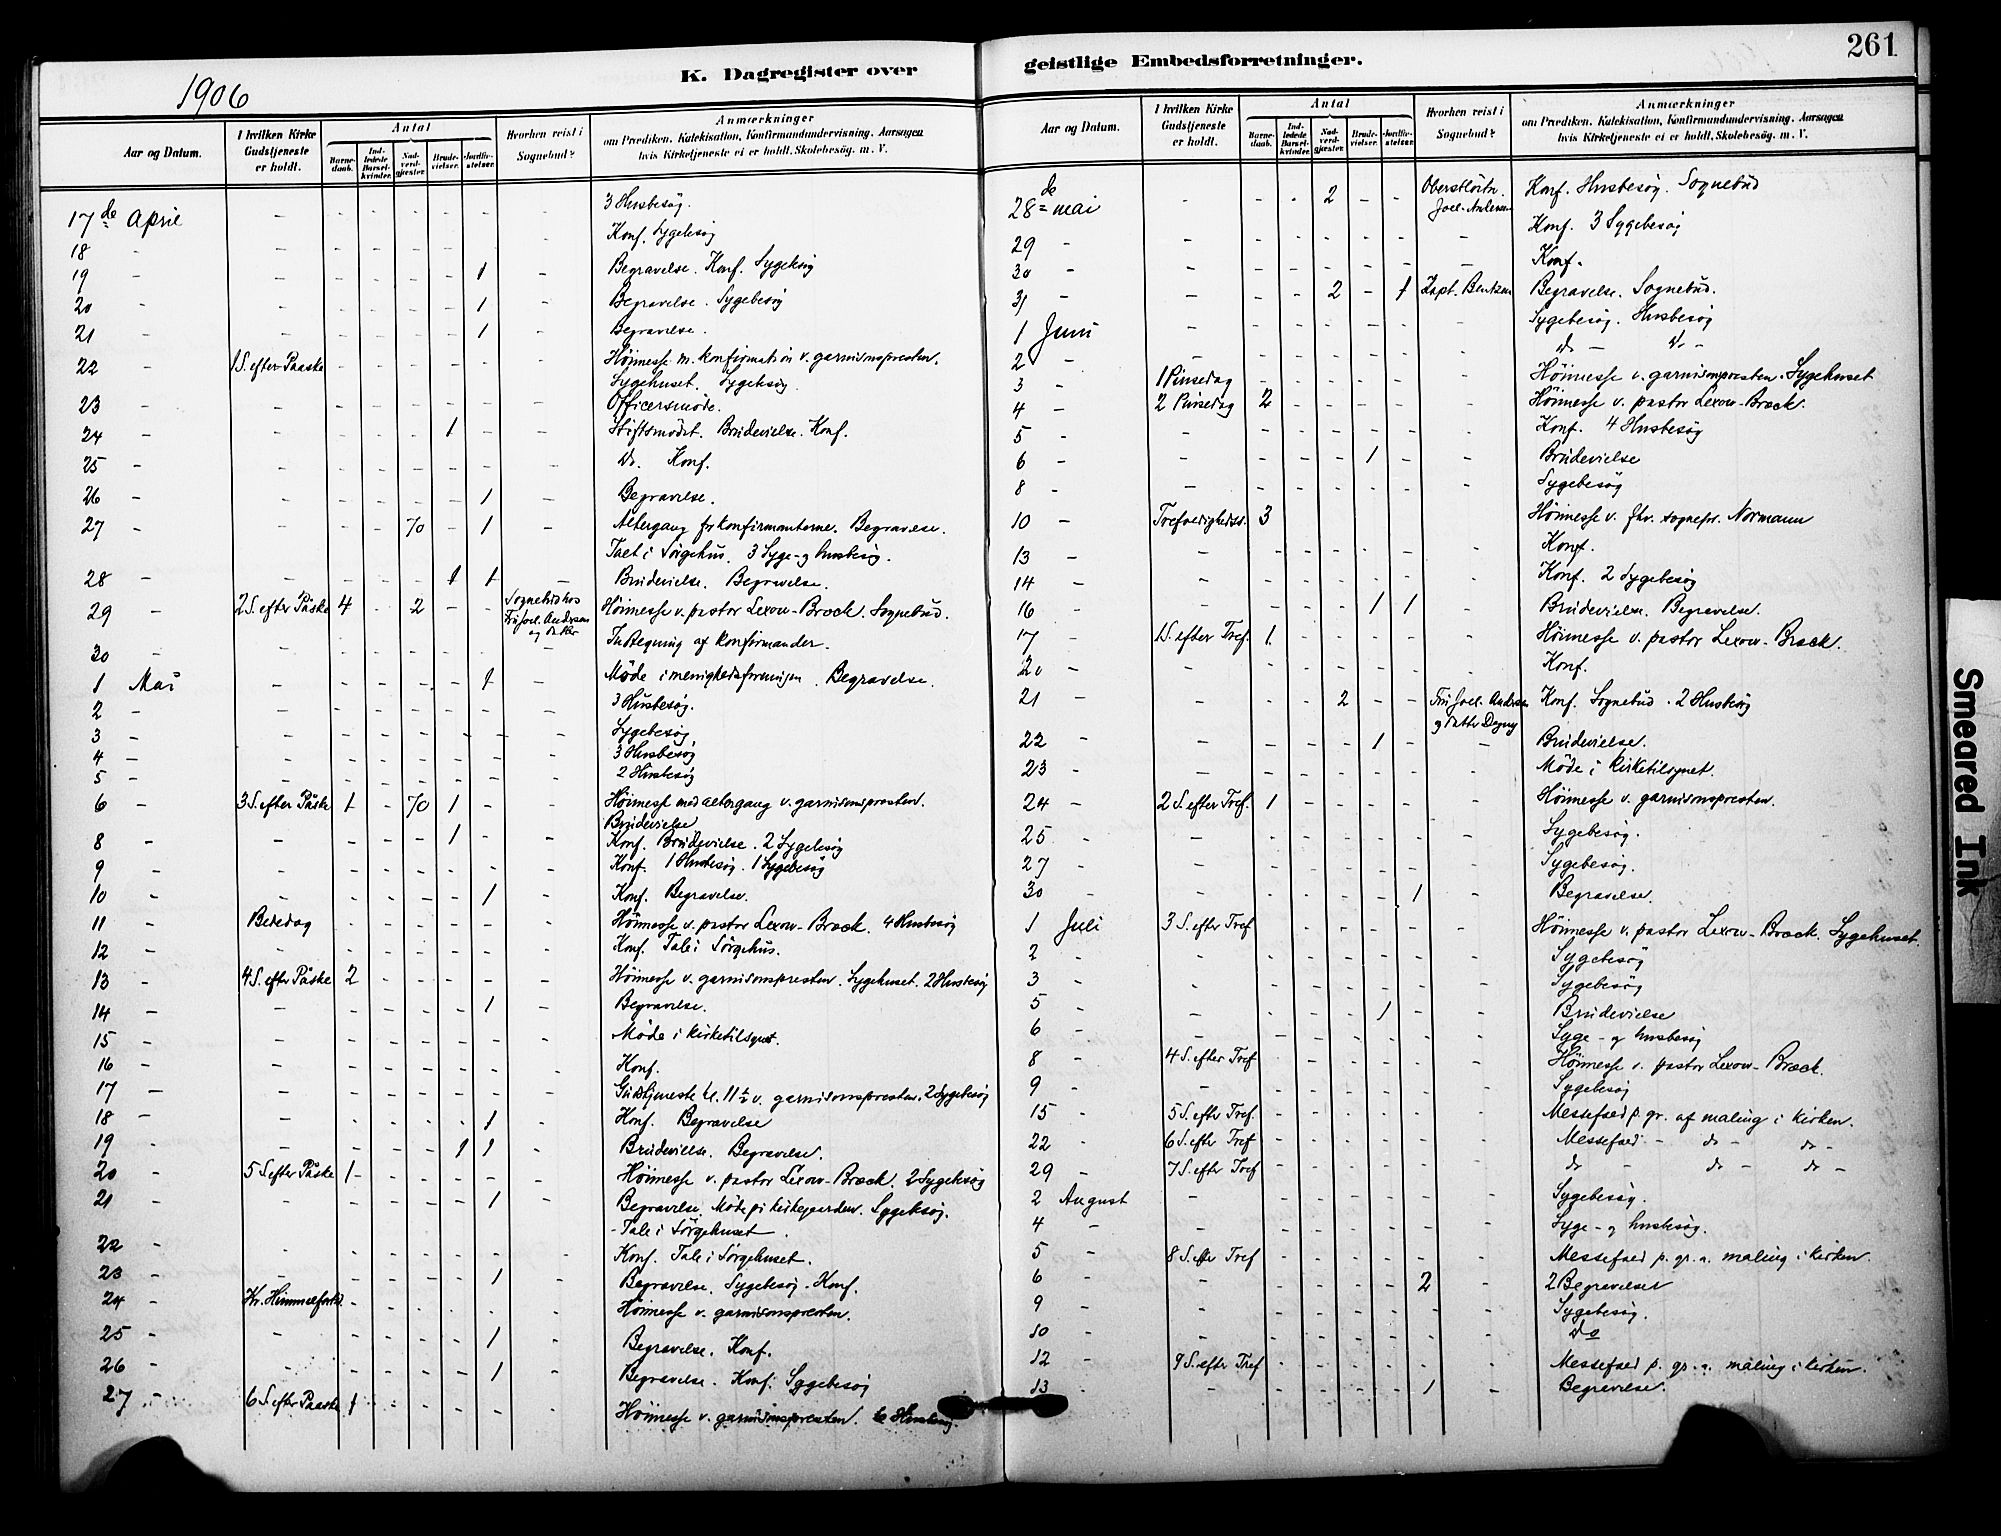 1906
K. Dagregister over
Aar og Datum.
I hvilken Kirke Gudstjeneste er holdt.
Antal
Barnedaab.
Indledede Barselkvinder.
Nadverdgjæster.
Brudevielser.
Jordfæstelser.
Hvorhen reist i Sognebud?
Anmærkninger
om Prædiken, Katekisation, Konfirmandundervisning, Aarsagen
hvis Kirketjeneste ei er holdt, Skolebesøg. m. V.
17de April - - - - - - - 3 Husbesøg.
18 - - - - - - - - Konf. Sygebesøg
19 - - - - - - 1 - Begravelse. Konf. Sygebesøg
20 - - - - - - 1 - Begravelse. Sygebesøg
21 - - - - - - 1 - Begravelse.
22 - 1 S. efter Paaske - - - - - - Høimesse m. konfirmation v. garnisonspresten.
Sygehuset. Sygebesøg.
23 - - - - - - - - Officersmøde.
24 - - - - - 1 - - Stiftsmødet. Brudevielse. Konf.
25 - - - - - - - - Do. Konf.
26 - - - - - - 1 - Begravelse.
27 - - - - 70 - 1 - Altergang for konfirmanterne. Begravelse.
Tale i Sørgehus. 3 Syge- og husbesøg.
28 - - - - - 1 1 - Brudevielse. Begravelse.
29 - 2 S. efter Påske 4 - 2 - - Sognebud hos Fru Joel. Andersen og datter Høimesse v. pastor Lexow-Brock. Sognebud.
30 - - - - - - - - Indtegning af konfirmander.
1 Mai - - - - - 1 - Møde i menighedsforeningen. Begravelse.
2 - - - - - - - - 3 Husbesøg.
3 - - - - - - - - Sygebesøg
4 - - - - - - - - 3 Husbesøg
5 - - - - - - - - 2 Husbesøg
6 - 3 S. efter Påske 1 - 70 1 - - Høimesse med altergang v. garnisonspresten.
Brudevielse
8 - - - - - 1 - - Konf. Brudevielse. 2 Sygebesøg
9 - - - - - - - - Konf. 1 Husbesøg. 1 Sygebesøg
10 - - - - - - 1 - Konf. Begravelse.
11 - Bededag - - - - - - Høimesse v. pastor Lexow-Brock. 4 Husbesøg
12 - - - - - - - Konf. Tale i Sørgehus.
13 - 4 S. efter Påske 2 - - - - - Høimesse v. garnisonspresten. Sygehuset. 2 Husbesøg
14 - - - - - - 1 - Begravelse.
15 - - - - - - - - Møde i kirketilsynet.
16 - - - - - - - - Konf.
17 - - - - - - - - Gudstjeneste kl. 11 1/2 v. garnisonspresten. 2 Sygebesøg
18 - - - - - - 1 - Konf. Begravelse
19 - - - - - 1 1 - Brudevielse. Begravelse.
20 - 5 S. efter Påske 1 - - - - - Høimesse v. pastor Lexow-Brock. 2 Sygebesøg
21 - - - - - - 1 - Begravelse. Møde på kirkegaarden. Sygebesøg.
- Tale i Sørgehuset.
22 - - - - - - - - Konf. Tale i Sørgehuset.
23 - - - - - - 1 - Begravelse. Sygebesøg. Konf.
24 - Kr. Himmelfartsd. - - - - - - Høimesse v. garnisonspresten.
25 - - - - - - 1 - Begravelse. Konf.
26 - - - - - - 1 - Begravelse. Konf. Sygebesøg
27 - 6 S. efter Paaske 1 - - - - - Høimesse v. garnisonspresten. 6 Husbesøg.
geistlige Embedsforretninger.
261
Aar og Datum.
I hvilken Kirke Gudstjeneste er holdt.
Antal
Barnedaab.
Indledede Barselkvinder.
Nadverdgjæster.
Brudevielser.
Jordfæstelser.
Hvorhen reist i Sognebud?
Anmærkninger
om Prædiken, Katekisation, Konfirmandundervisning, Aarsagen
hvis Kirketjeneste ei er holdt, Skolebesøg. m. V.
28de mai - - - 2 - - Oberstløitn. Joel. Andersen Konf. Husbesøg. Sognebud
29 - - - - - - - - Konf. 3 Sygebesøg
30 - - - - - - - - Konf.
31 - - - - 2 - 1 Kapt. Bentzen Begravelse. Sognebud.
1 Juni - - - - - - - Sygebesøg. Husbesøg
2 - - - - - - - - Do - Do -
3 - 1 Pinsedag - - - - - - Høimesse v. garnisonspresten. Sygehuset
4 - 2 Pinsedag 2 - - - - - Høimesse v. pastor Lexow-Brock.
5 - - - - - - - - Konf. 4 Husbesøg
6 - - - - - 1 - - Brudevielse
8 - - - - - - - - Sygebesøg
10 - Trefoldighedss. 3 - - - - - Høimesse v. fhv. sognepr. Normann
13 - - - - - - - - Konf.
14 - - - - - - - - Konf. 2 Sygebesøg
16 - - - - - 1 1 - Brudevielse. Begravelse.
17 - 1 S. efter Tref. 1 - - - - - Høimesse v. pastor Lexow-Brock.
20 - - - - - - - - Konf.
21 - - - - 2 - - Fru Joel. Andersen og datter Dagny Konf. Sognebud. 2 Husbesøg
22 - - - - - 1 - - Brudevielse.
23 - - - - - - - - Møde i kirketilsynet.
24 - 2 S. efter Tref. 1 - - - - - Høimesse v. garnisonspresten.
25 - - - - - - - - Sygebesøg.
27 - - - - - - - - Sygebesøg.
30 - - - - - - 1 - Begravelse.
1 Juli 3 S. efter Tref - - - - - - Høimesse v. pastor Lexow-Brock. Sygehuset.
2 - - - - - - - - Sygebesøg
3 - - - - - - - - Sygebesøg
5 - - - - - 1 - - Brudevielse
6 - - - - - - - - Syge- og husbesøg
8 - 4 S. efter Tref - - - - - - Høimesse v. pastor Lexow-Brock.
9 - - - - - - - - Sygebesøg
15 - 5 S. efter Tref. - - - - - - Messefald p. gr. af maling i kirken.
22 - 6 S. efter Tref - - - - - - Messefald - do - do -
29 - 7 S. efter Tref - - - - - - do - do - do -
2 August - - - - - - - Sygebesøg.
4 - - - - - - - - Syge- og husbesøg.
5 - 8 S. efter Tref - - - - - - Messefald p. gr. a. maling i kirken.
6 - - - - - - 2 - 2 Begravelser
9 - - - - - - - - Sygebesøg.
10 - - - - - - - - do
12 - 9 S. efter Tref - - - - - - Messefald p. gr. a. maling i kirken.
13 - - - - - - 1 - Begravelse.
Smeared Ink